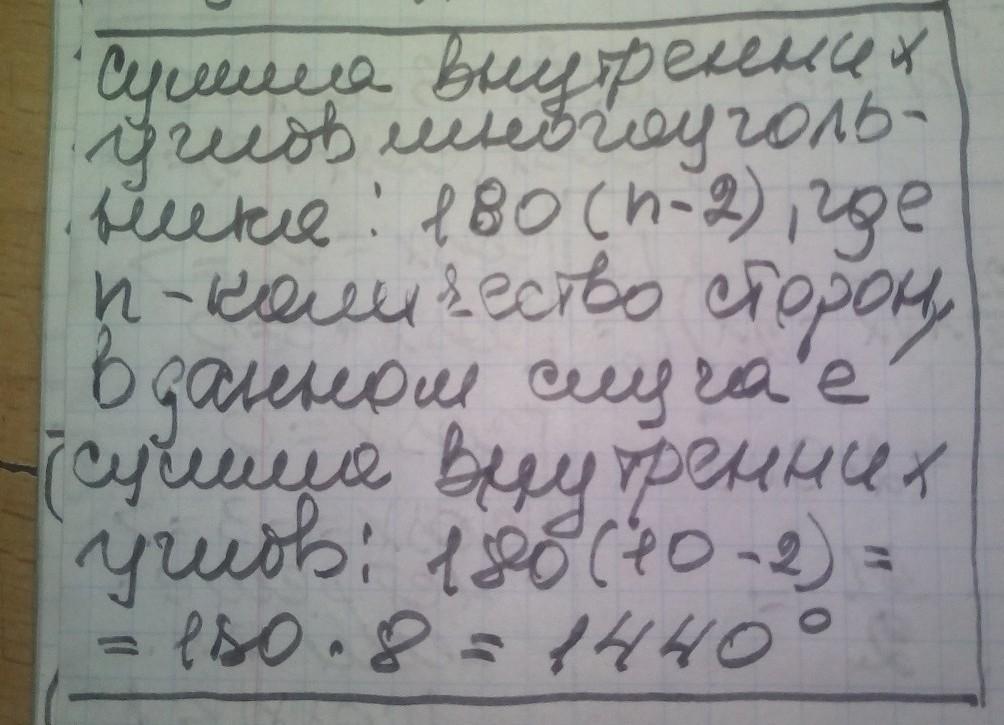 Сумма внутренних
углов многоуголь-
ника: 180(n-2), где
n-количество сторон,
в данном случае
сумма внутренних
углов: 180(10-2)=
=180·8=1440°